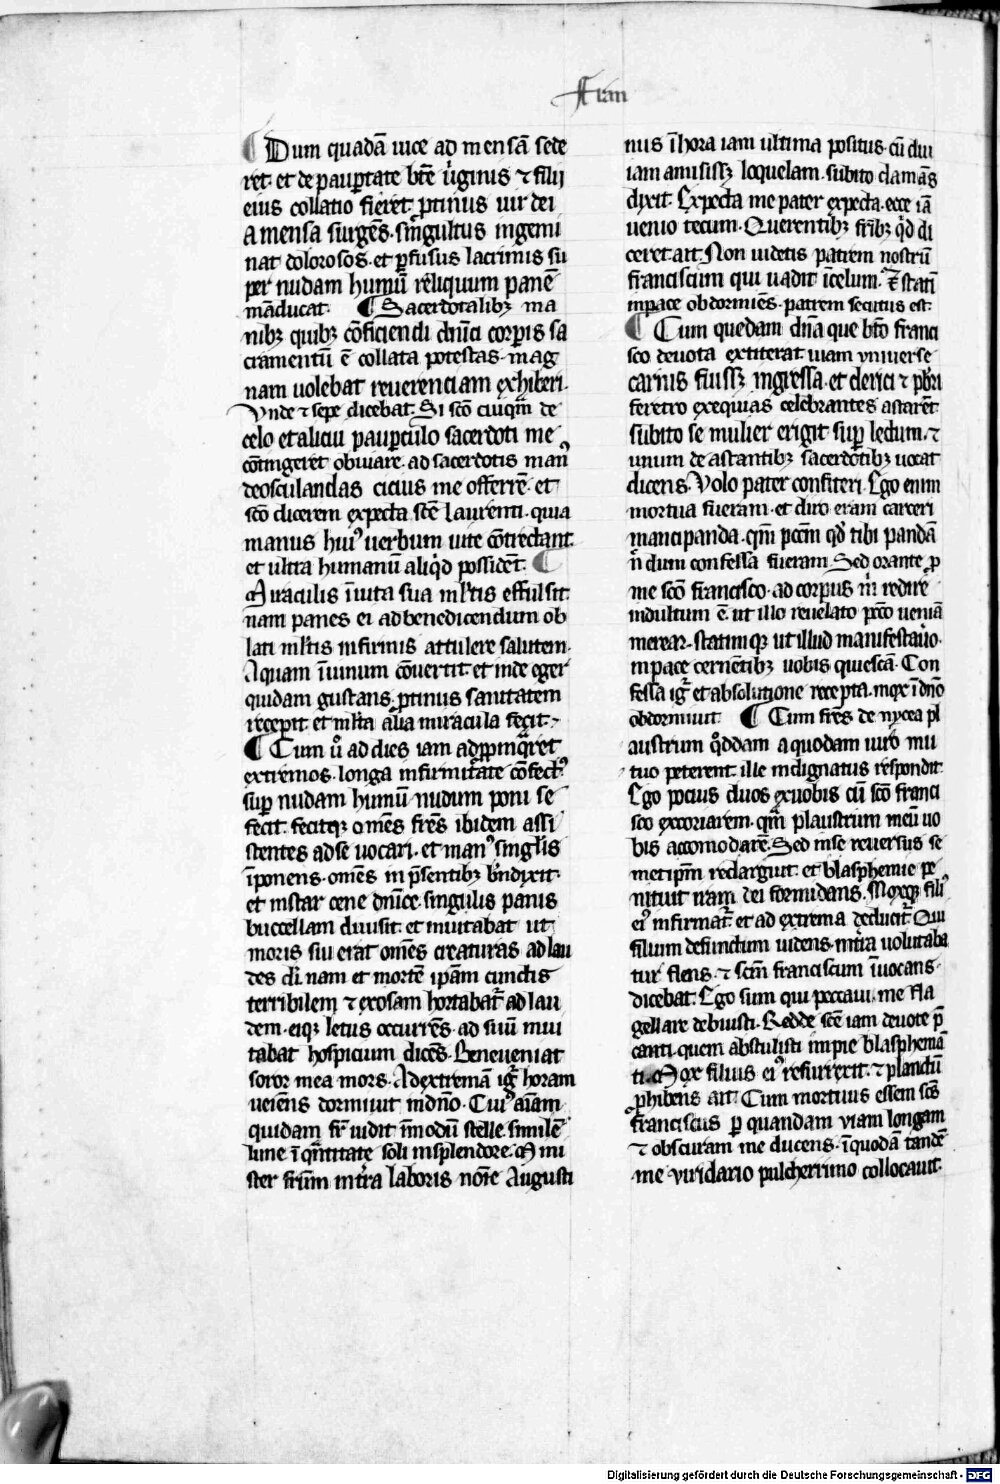 Fran
¶ Dum quadā uice ad mensā sede
ret. et de paup̱tate btē ůginis ⁊ filij
eius collatio fieret. ꝓtinus uir dei
a mensa surgēs. singultus ingemi
nat dolorosos. et ꝑfusus lacrimis su
per nudam humū reliquum panē
māducat. ¶ Sacerdotalibꝫ ma
nibꝫ quibꝫ cōficiendi dn̄ici corꝑis sa
cramentū ē collata potestas. mag
nam uolebat reuerenciam exhiberi.
Vnde ⁊ sepe dicebat. Si sc̄o cuiqm̄ de
celo et alicui pauꝑculo sacerdoti me
cōtingeret obuiare. ad sacerdotis manꝰ
deosculandas cicius me offerrē. et
sc̄o dicerem expecta sc̄e Laurenti. quia
manus huiꝰ uerbum uite cōtrectant
et ultra humanū aliqͥd possident. ¶
Miraculis ī uita sua ml̄tis effulsit.
nam panes ei ad benedicendum ob
lati ml̄tis infirmis attulere salutem.
Aquam ī uinum cōuertit. et inde eger
quidam gustans ꝓtinus sanitatem
recepit. et ml̄ta alia miracula fecit.
¶ Cum ů ad dies iam adꝓpinq̄ret
extremos. longa infirmitate cōfectꝰ
suꝑ nudam humū nudum poni se
fecit. fecitqꝫ om̄es fr̄es ibidem assi
stentes ad se uocari. et manꝰ singlīs
īponens. om̄es in p̄sentibꝫ bn̄dixit.
et instar cene dn̄ice singulis panis
buccellam diuisit. et inuitabat ut
moris sui erat om̄es creaturas ad lau
des di. nam et mortē ip̄am cunctis
terribilem ⁊ exosam hortabat᷑ ad lau
dem. eiqꝫ letus occurrēs. ad suū inui
tabat hospicium dicēs. Beneueniat
soror mea mors. Ad extremā igr̄ horam
ueiens dormiuit in dn̄o. Cuiꝰ aīam
quidam fr̄ uidit in modū stelle. similē
lune ī qͣntitate soli in splendore. Mini
ster fr̄um in tr̄a laboris noīe Augusti
nus ī hora iam ultima positus. cū diu
iam amisissꝫ loquelam. subito clamās
dixit. Expecta me pater expecta. ecce iā
uenio tecum. Querentibꝫ fr̄ibꝫ qͥd di
ceret. ait. Non uidetis patrem nostrū
franciscum qui uadit ī celum. Et statī
in pace obdormiēs. patrem secutus est.
¶ Cum quedam dn̄a que bt̄o franci
sco deuota extiterat uiam vniuerse
carnis fuissꝫ ingressa. et clerici ⁊ pbr̄i
feretro exequias celebrantes astarēt.
subito se mulier erigit suꝑ lectum. ⁊
unum de astantibꝫ sacerdotibꝫ uocat
dicens. Volo pater confiteri. Ego enim
mortua fueram. et diro eram carceri
mancipanda. qm̄ pcc̄m qd̄ tibi pandā
n̄ dum confessa fueram. Sed orante ꝓ
me sc̄o francisco. ad corpus m̄ redire
indultum ē. ut illo reuelato pcc̄o ueniā
merear. statimqꝫ ut illud manifestauero.
in pace cernētibꝫ uobis quiescā. Con
fessa igr̄ et absolutione recepta. mox ī dn̄o
obdormiuit. ¶ Cum fr̄es de nycea pl
austrum qd̄dam a quodam uiro mu
tuo peterent. ille indignatus respondit.
Ego pocius duos ex uobis cū sc̄o franci
sco excoriarem. qm̄ plaustrum meū uo
bis accomodarē. Sed in se reuersus se
metip̄m redarguit. et blasphemie pe
nituit iram dei formidans. Moxqꝫ filiꝰ
eiꝰ infirmat᷑. et ad extrema deducit᷑. Qui
filium defunctum uidens. in tr̄a uolutaba
tur flens. ⁊ sc̄m franciscum īuocans.
dicebat. Ego sum qui peccaui. me fla
gellare debuisti. Redde sc̄e iam deuote p̄
canti. quem abstulisti impie blasphemā
ti. Mox filius eiꝰ resurrexit. ⁊ planctū
ꝓhibens ait. Cum mortuus essem sc̄s
franciscus ꝑ quandam viam longam
⁊ obscuram me ducens. ī quodā tandē
me viridario pulcherrimo collocauit.
Digitalisierung gefördert durch die Deutsche Forschungsgemeinschaft - DFG